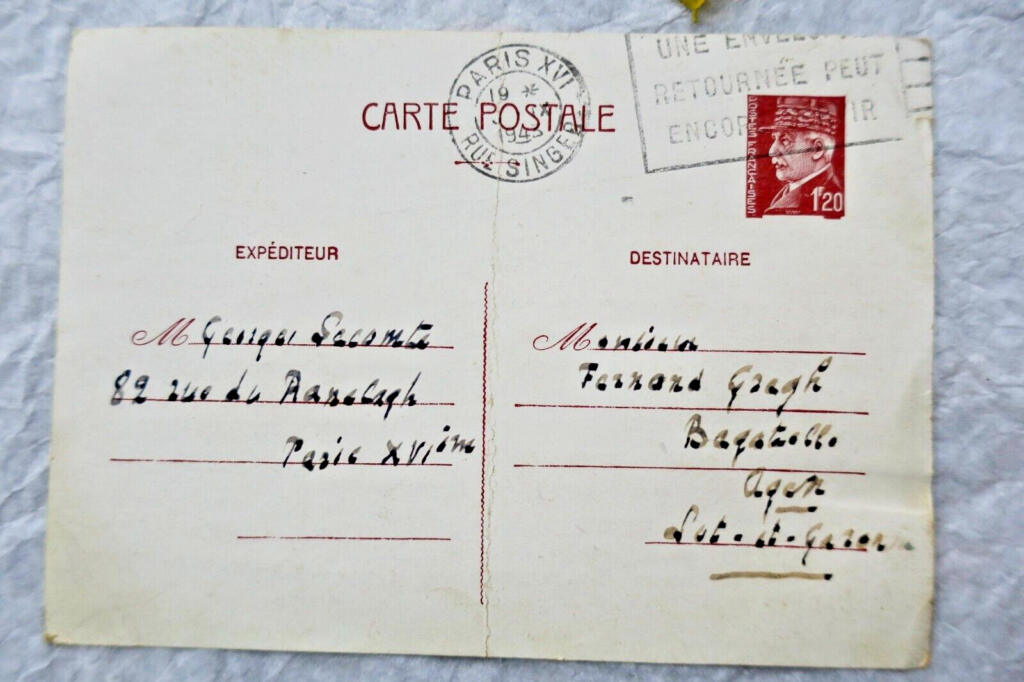 UNE
RETOURNÉE PEUT
ENCOR IR
PARIS XVI
19 *
1943
RUE SINGER
CARTE POSTALE
POSTES FRANÇAISES
1F20
EXPÉDITEUR
M Georges Lecomte
82 rue du Ranelagh
Paris XVIème
DESTINATAIRE
Monsieur
Fernand Gregh
Bagatelle
Agen
Lot-et-Garonne